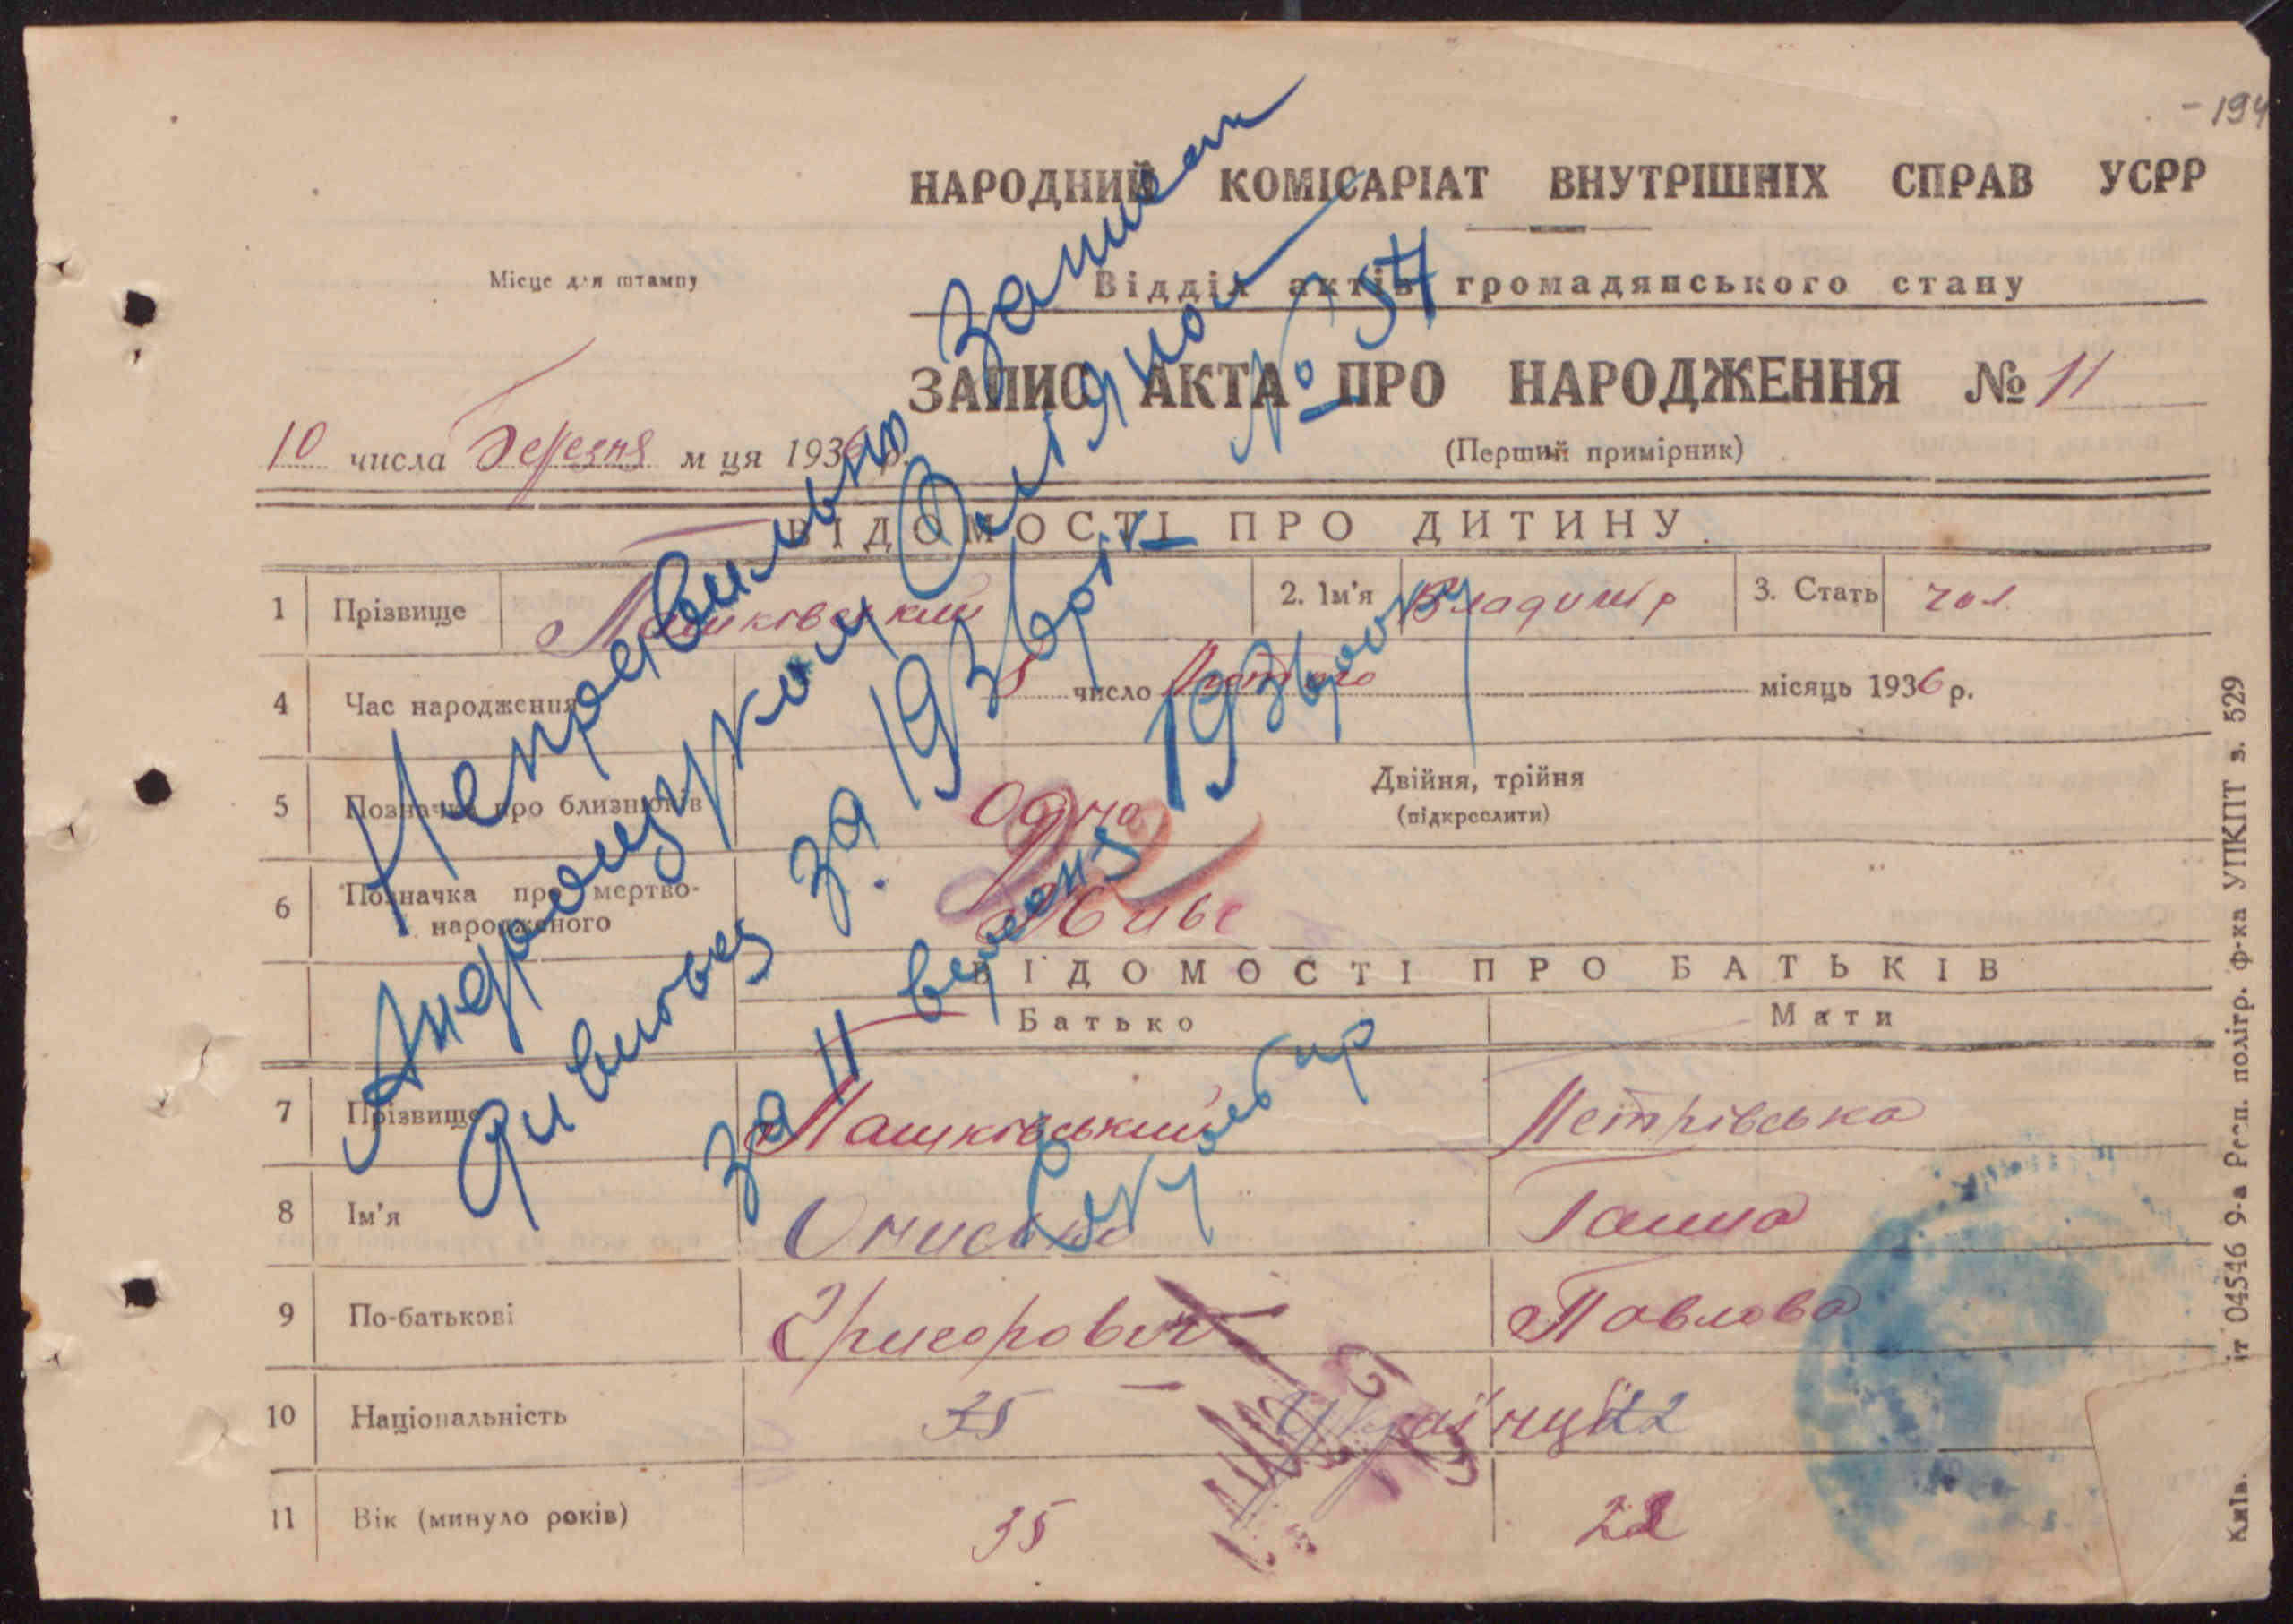 - 194
НАРОДНИЙ КОМІСАРІАТ ВНУТРІШНІХ СПРАВ УСРР
Місце для штампу
Відділ актів громадянського стану
ЗАПИС АКТА ПРО НАРОДЖЕННЯ № 11
(Перший примірник)
10 числа Березня м ця 1936 р.
ВІДОМОСТІ ПРО ДИТИНУ
1 Прізвище Машківський 2. Ім'я Владимір 3. Стать чол.
4 Час народження 5 число Лютого місяць 1936 р.
5 Позначка про близнюків Одна Двійня, трійня
(підкреслити)
6 Позначка про мертво-
народженого Живе
ВІДОМОСТІ ПРО БАТЬКІВ
Батько Мати
7 Прізвище Машківський Петрівська
8 Ім'я Ганна
9 По-батькові Григорович Павлова
10 Національність 35 Українці 22
11 Вік (минуло років) 35 22
Неправильно Запис
за 1936 рік № 54
за 11 вересня 1936 року
Київ. 04546 9-а Респ. полігр. ф-ка УПКПТ з. 529